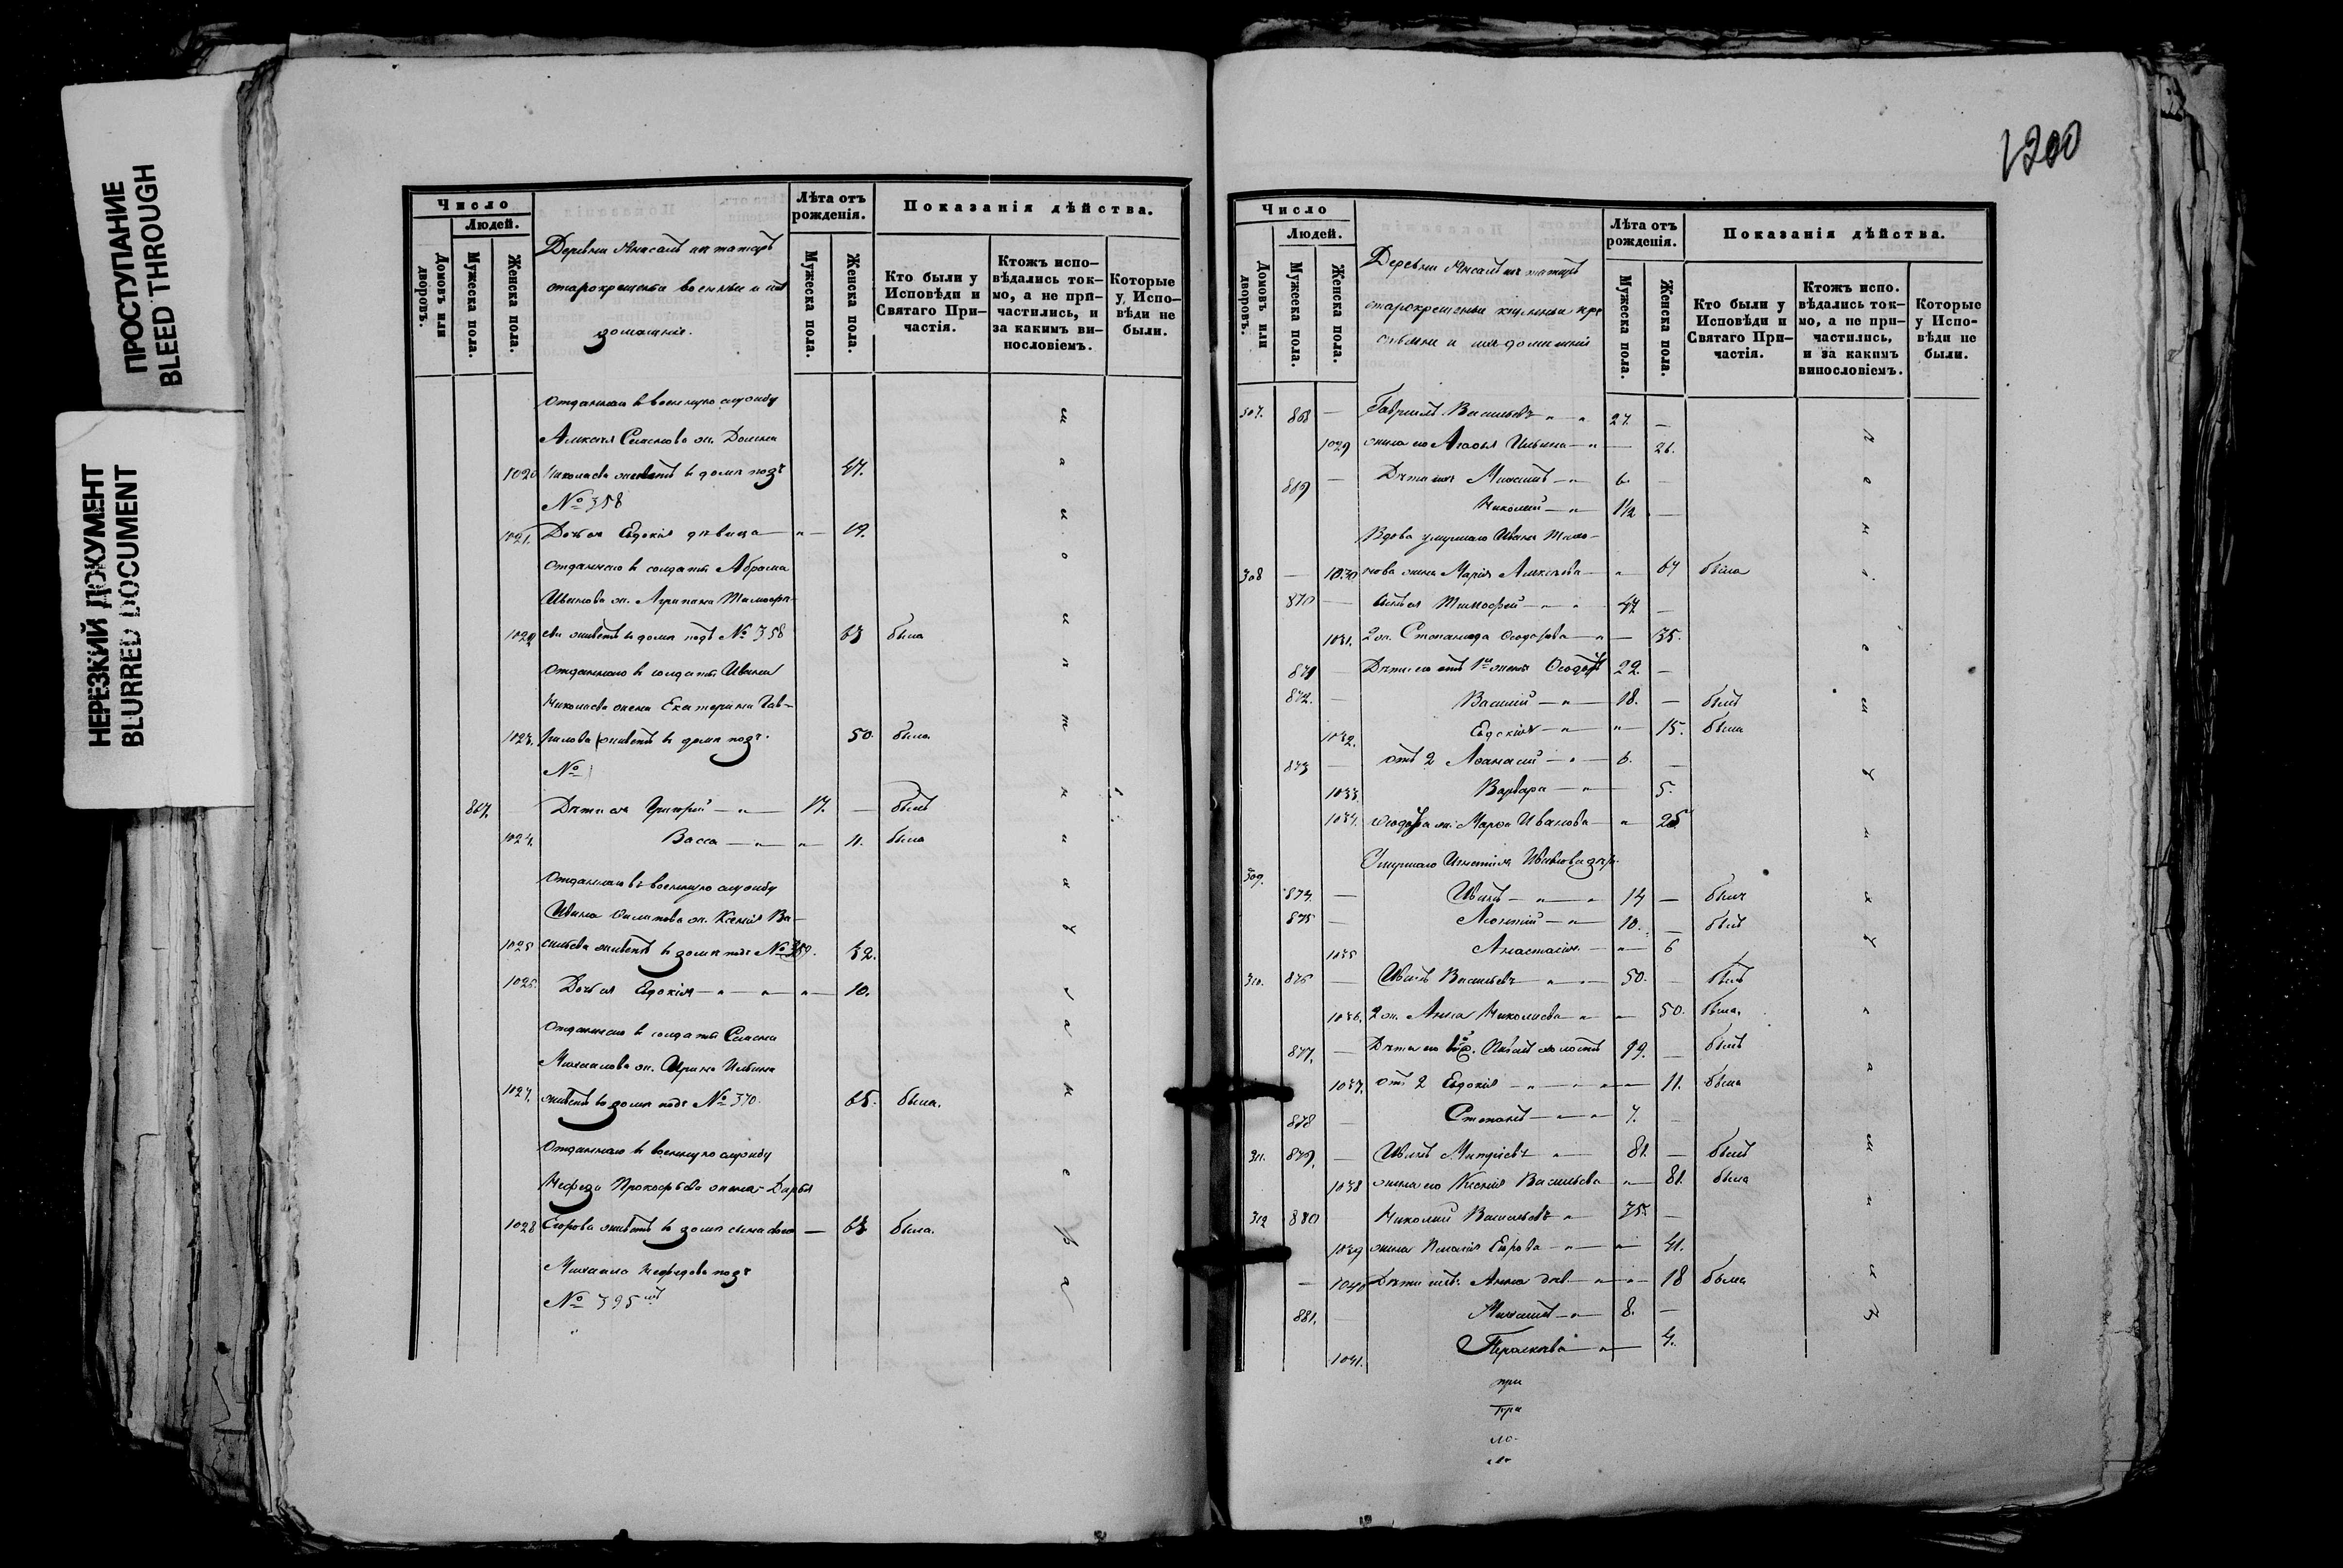 ПРОСТУПАНИЕ
BLEED THROUGH
НЕРЕЗКИЙ ДОКУМЕНТ
BLURRED DOCUMENT
Число
Людей.
Домовъ или дворовъ.
Мужеска пола.
Женска пола.
Деревни
старокрещены военные и ихъ
домашніе.
Лѣта отъ рожденія.
Мужеска пола.
Женска пола.
Показанія дѣйства.
Кто были у Исповѣди и Святаго При-частія.
Ктожъ испо-вѣдались ток-мо, а не при-частились, и за какимъ ви-нословіемъ.
Которые у Испо-вѣди не были.
Отданнаго в военную службу
Алексѣя Семенова ж. Домна
1020 Николаева живетъ в домѣ подъ 47.
№ 358
1021. Дочь ея Евдокія дѣвица — " — 19.
Отданнаго в солдаты Абрама
Иванова ж. Агрипина Тимофѣ-
1022 ева живетъ в домѣ подъ № 358 63 была
Отданнаго в солдаты Ивана
Николаева жена Екатерина Гав-
1023. рилова живетъ в домѣ подъ 50 была
№
867. — Дѣти ея Григорій — " — 17. — былъ
1024. Васса — " — " — 11. была
Отданнаго въ военную службу
Ивана Филипова ж. Ксенія Ва-
1025 сильева живетъ в домѣ подъ № 32.
1026. Дочь ея Евдокія — " — " — " — 10.
Отданнаго в солдаты Семена
Михаилова ж. Ирина Ильина
1027. живетъ в домѣ подъ № 370. 65. была.
Отданнаго в военную службу
Мефодія Прокофьева жена Дарья
1028 Егорова живетъ в домѣ сына своего — 63 была.
Михаила Мефодева подъ
№ 395
1200
Число
Людей.
Домовъ или дворовъ.
Мужеска пола.
Женска пола.
Деревни
старокрещены
и ихъ домашніе
Лѣта отъ рожденія.
Мужеска пола.
Женска пола.
Показанія дѣйства.
Кто были у Исповѣди и Святаго При-частія.
Ктожъ испо. вѣдались ток-мо, а не при-частились, и за какимъ винословіемъ.
Которые у Испо-вѣди не были.
307. 868 — Гавриилъ Васильевъ " " 27. —
1029 жена его Агафья Ильина — " — 26.
869 — Дѣти ихъ Михаилъ — " — 6. —
Николай — " — 1½ —
Вдова умершаго Ивана Тихо-
308 — 1030 нова жена Марія Алексѣева — " — 64 была
870 — Сынъ ея Тимофей — " — " 47 —
1031. 2 ж. Степанида Феодорова — " — 35.
871 — Дѣти его отъ 1й жены Феодоръ 22. —
872. — Василій — " — 18. — былъ
1032. Евдокія — " — " — 15. была
873 — отъ 2 Афанасій — " — 6. —
1033. Варвара — " — 5.
1034. Феодора ж. Марфа Иванова — " 25
309. Умершаго Игнатія Иванова дѣти
874. — Иванъ — " — " 14 — былъ
875 — Леонтій — " — 10. — былъ
1035 Анастасія — " — 6
310. 876 — Иванъ Васильевъ — " — 50. — былъ
1036. 2 ж. Анна Николаева — " — 50. была.
877. — Дѣти его Иванъ холостъ 19. — былъ
1037. отъ 2 Евдокія — " — " — 11. была
878 — Степанъ — " — 7. —
311. 879. — Иванъ Митрѣевъ — " — 81. — былъ
1038 жена его Ксенія Васильева — " — 81. была
312 880 Николай Васильевъ — " 35. —
1039 жена Егорова — " — " — 41.
— 1040 Дѣти ихъ Анна дѣв. — " — 18 была
881. — Михаилъ — " — 8. —
1041. Парасковья — " — 4.